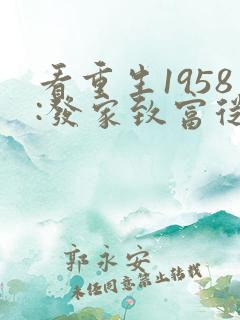 看重生1958
:發家致富從
郭永安
未经同意禁止转载